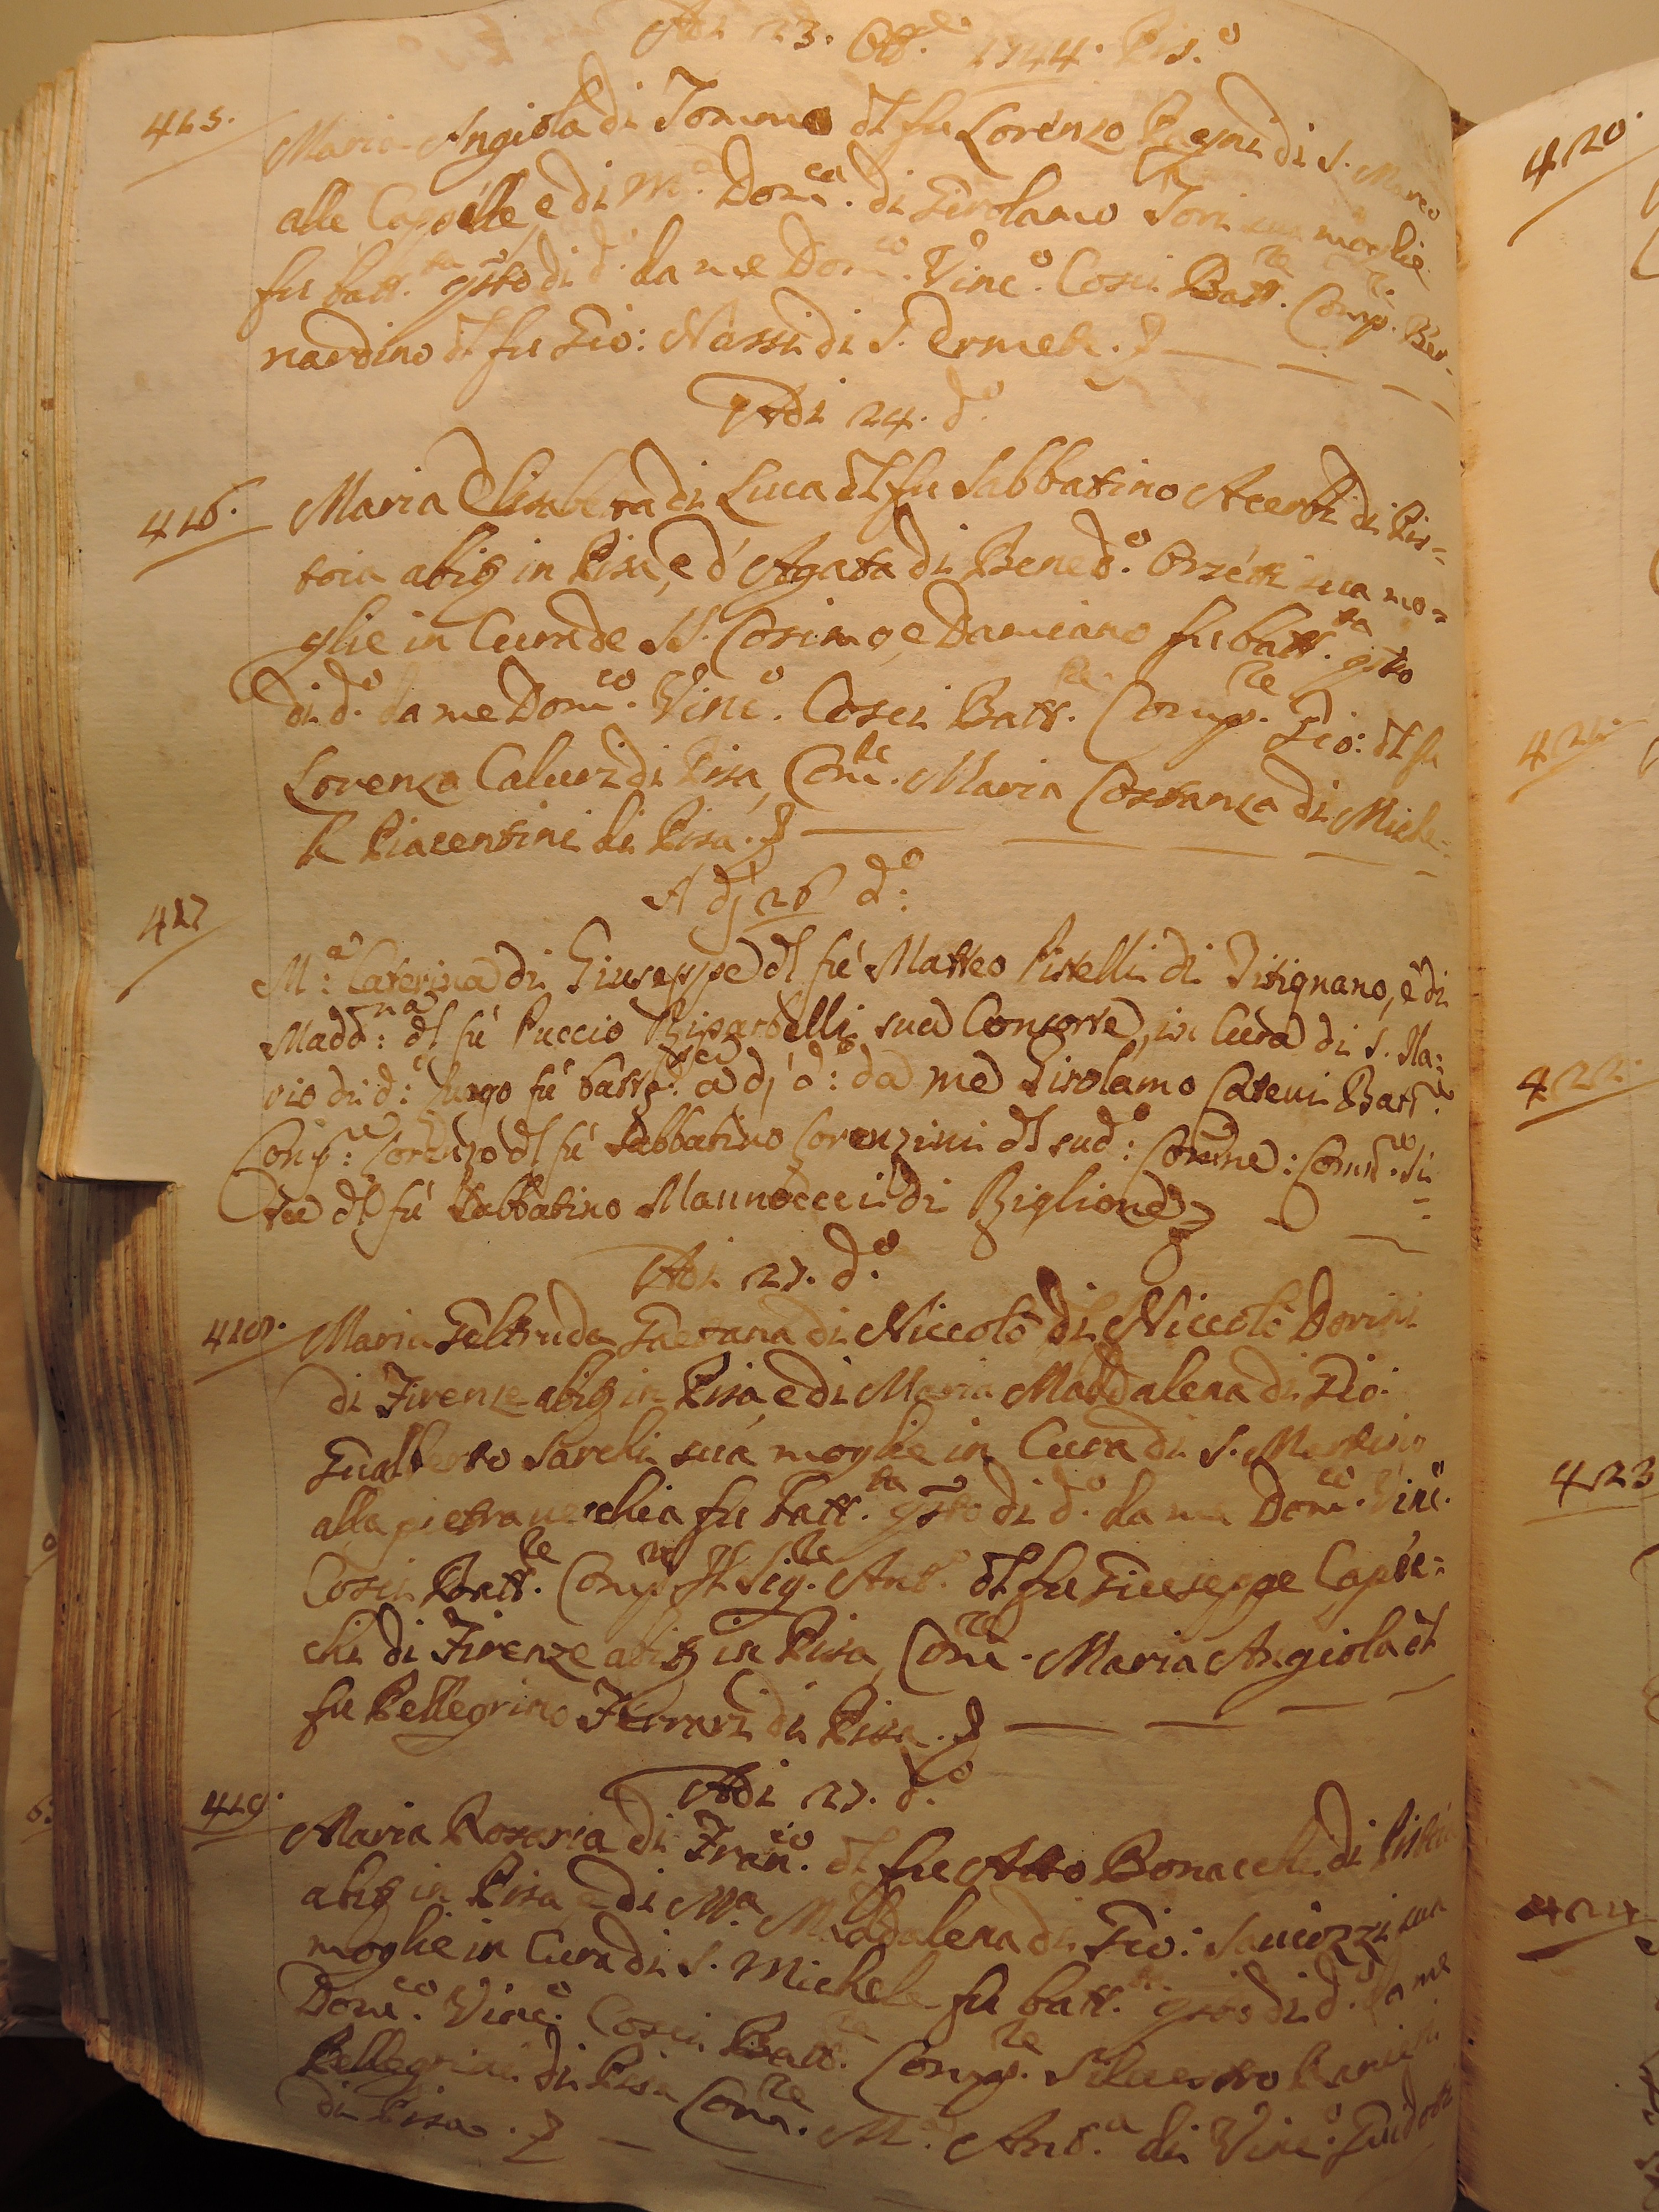 Adi 23. Ott.e 1744. Pis.o
415.
Maria Angiola di Tommo dl fu Lorenzo Pagni di S. Marco
alle Cappelle, e di M.a Dom.ca di Girolamo Tori sua moglie
fu batt.ta gsto di d.o da me Dom.co Vinc.o Cosci Batt.re Comp.re Ber-
nardino dl fu Gio: Nassi di S. Ermete.
Adi 24. d.o
416.
Maria Elisabetta di Luca dl fu Sabbatino Acerbi di Pis=
toia abig in Pisa, e d'Agata di Bened.o Orzetti sua mo=
glie in Cura de SS. Cosimo, e Damiano fu batt.ta gsto
di d.o da me Dom.co Vinc.o Cosci Batt.re Comp.re Gio: dl fu
Lorenzo Caluri di Pisa, Com.re Maria Costanza di Miche=
le Piacentini di Pisa.
A dj 26 d:o
417
M:a Caterina di Giuseppe dl fu Matteo Pistelli di Titignano, e di
Madd:na dl fu Puccio sua Consorte, in Cura di S. Ila:
rio di d:o luogo fu battz:ta a dj d:o da me Girolamo Cateni Batt.e
Comp:e Lorenzo dl fu Sabbatino Lorenzini dl sud:o Comune: Com.e
dl fu Sabbatino Mannocci di Biglione
Adi 27. d.o
418.
Maria Geltruda Gaetana di Niccolò di Niccolò Dorini
di Firenze abig in Pisa, e di Maria Maddalena di Gio:
Gualberto Sarchi sua moglie in Cura di S. Martino
alla pietra vecchia fu batt.ta gsto di d.o da me Dom.co Vinc.o
Cosci Batt.re Comp.re Il Sig.re Ant.o dl fu Giuseppe Capée=
chi di Firenze abig in Pisa, Com.re Maria Angiola dl
fu Pellegrino Ferrari di Pisa.
Adi 27. d.o
419.
Maria Rosaria di Fran.co dl fu Atto Bonacchi di
abig in Pisa e di M.a Maddalena di Gio: sua
moglie in Cura di S. Michele fu batt.ta gsto di d.o da me
Dom.co Vinc.o Cosci Batt.re Comp.re Silvestro Ranieri
Pellegrini di Pisa Com.re M.a Ant.a di Vinc.o Guidotti
di Pisa.
420.
421
422.
423
424